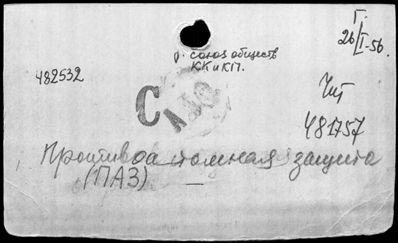 Г.
26/I-56.
р. союз обществ
КК и КП.
482532
С
Чит
481757
Противоатомная защита
(ПАЗ) —